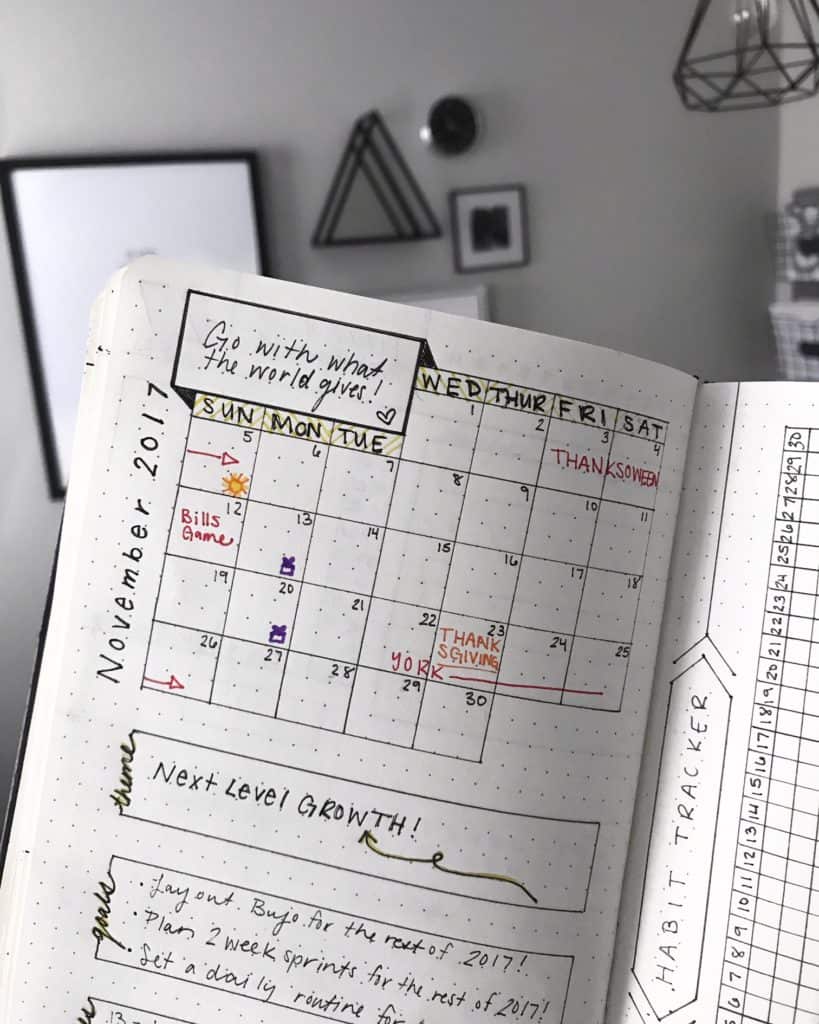 Go with what
the world gives!
November 2017
SUN MON TUE WED THUR FRI SAT
1 2 3 4
THANKSOWEEN
5 6 7 8 9 10 11
12 13 14 15 16 17 18
Bills
Game
19 20 21 22 23 24 25
THANK
SGIVING
YORK
26 27 28 29 30
theme
Next Level GROWTH!
goals
• Lay out Bujo for the rest of 2017!
• Plan 2 week sprints for the rest of 2017!
• Set a daily routine for
13
HABIT TRACKER
30
29
28
27
26
25
24
23
22
21
20
19
18
17
16
15
14
13
12
11
10
9
8
7
6
5